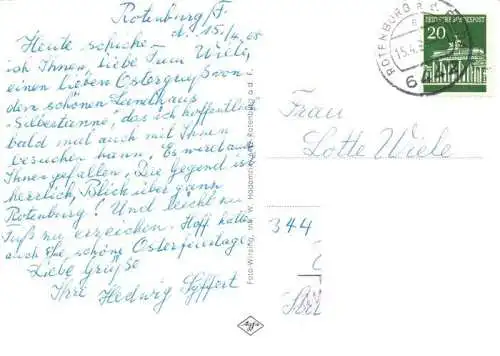 Rotenburg/F.
d. 15./4.68
Heute schicke
ich Ihnen, liebe Frau Wiele,
einen lieben Ostergruß von
dem schönen Landhaus
"Silbertanne", das ich hoffentlich
bald mal auch mit Ihnen
besuchen kann. Es wird auch
Ihnen gefallen. Die Gegend ist
herrlich, Blick über ganz
Rotenburg! Und leicht zu
Fuß zu erreichen. Hoff. hatten
auch Sie schöne Osterfeiertage.
Liebe Grüße
Ihre Hedwig Syffert
Foto-Wirsing, Inh. W.
Rotenburg a. d.
Agfa
ROTENBURG
15.4.
644
DEUTSCHE BUNDESPOST
20
Frau
Lotte Wiele
344